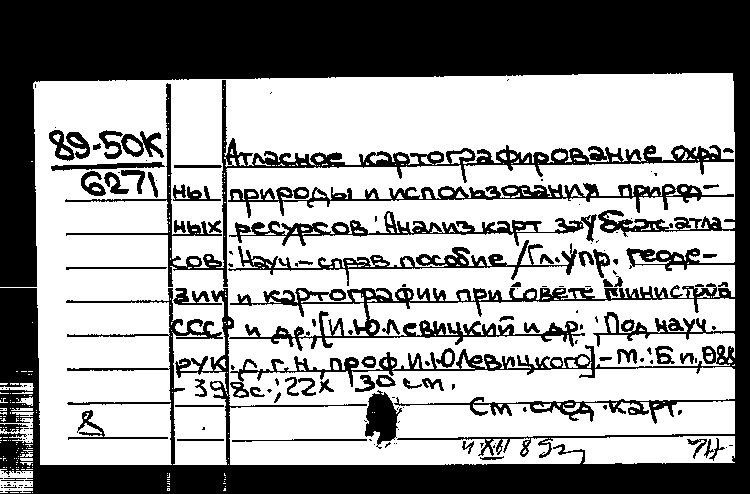 89-50К
6271
Атласное картографирование охра-
ны природы и использования природ-
ных ресурсов: Анализ карт зарубеж. атла-
сов: Науч.-справ. пособие / Гл. упр. геоде-
зии и картографии при Совете Министров
СССР и др.; [И.Ю. Левицкий и др.; Под науч.
рук. д.г.н., проф. И.Ю. Левицкого]. - М.: Б.и.,
- 398с.; 22х 30 см.
См. след. карт.
8